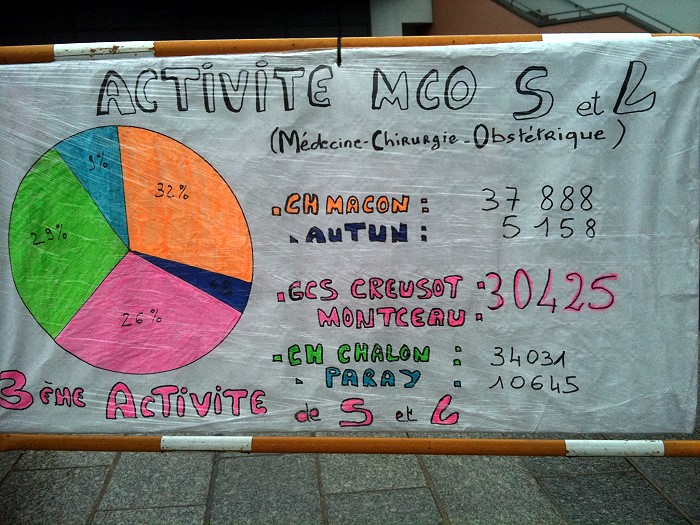 ACTIVITE MCO S et L
(Médecine-Chirurgie-Obstétrique)
9%
32%
29%
26%
.CH MACON : 37 888
. AUTUN : 5 158
.GCS CREUSOT MONTCEAU : 30425
.CH CHALON : 34031
. PARAY : 10645
3ème ACTIVITE de S et L